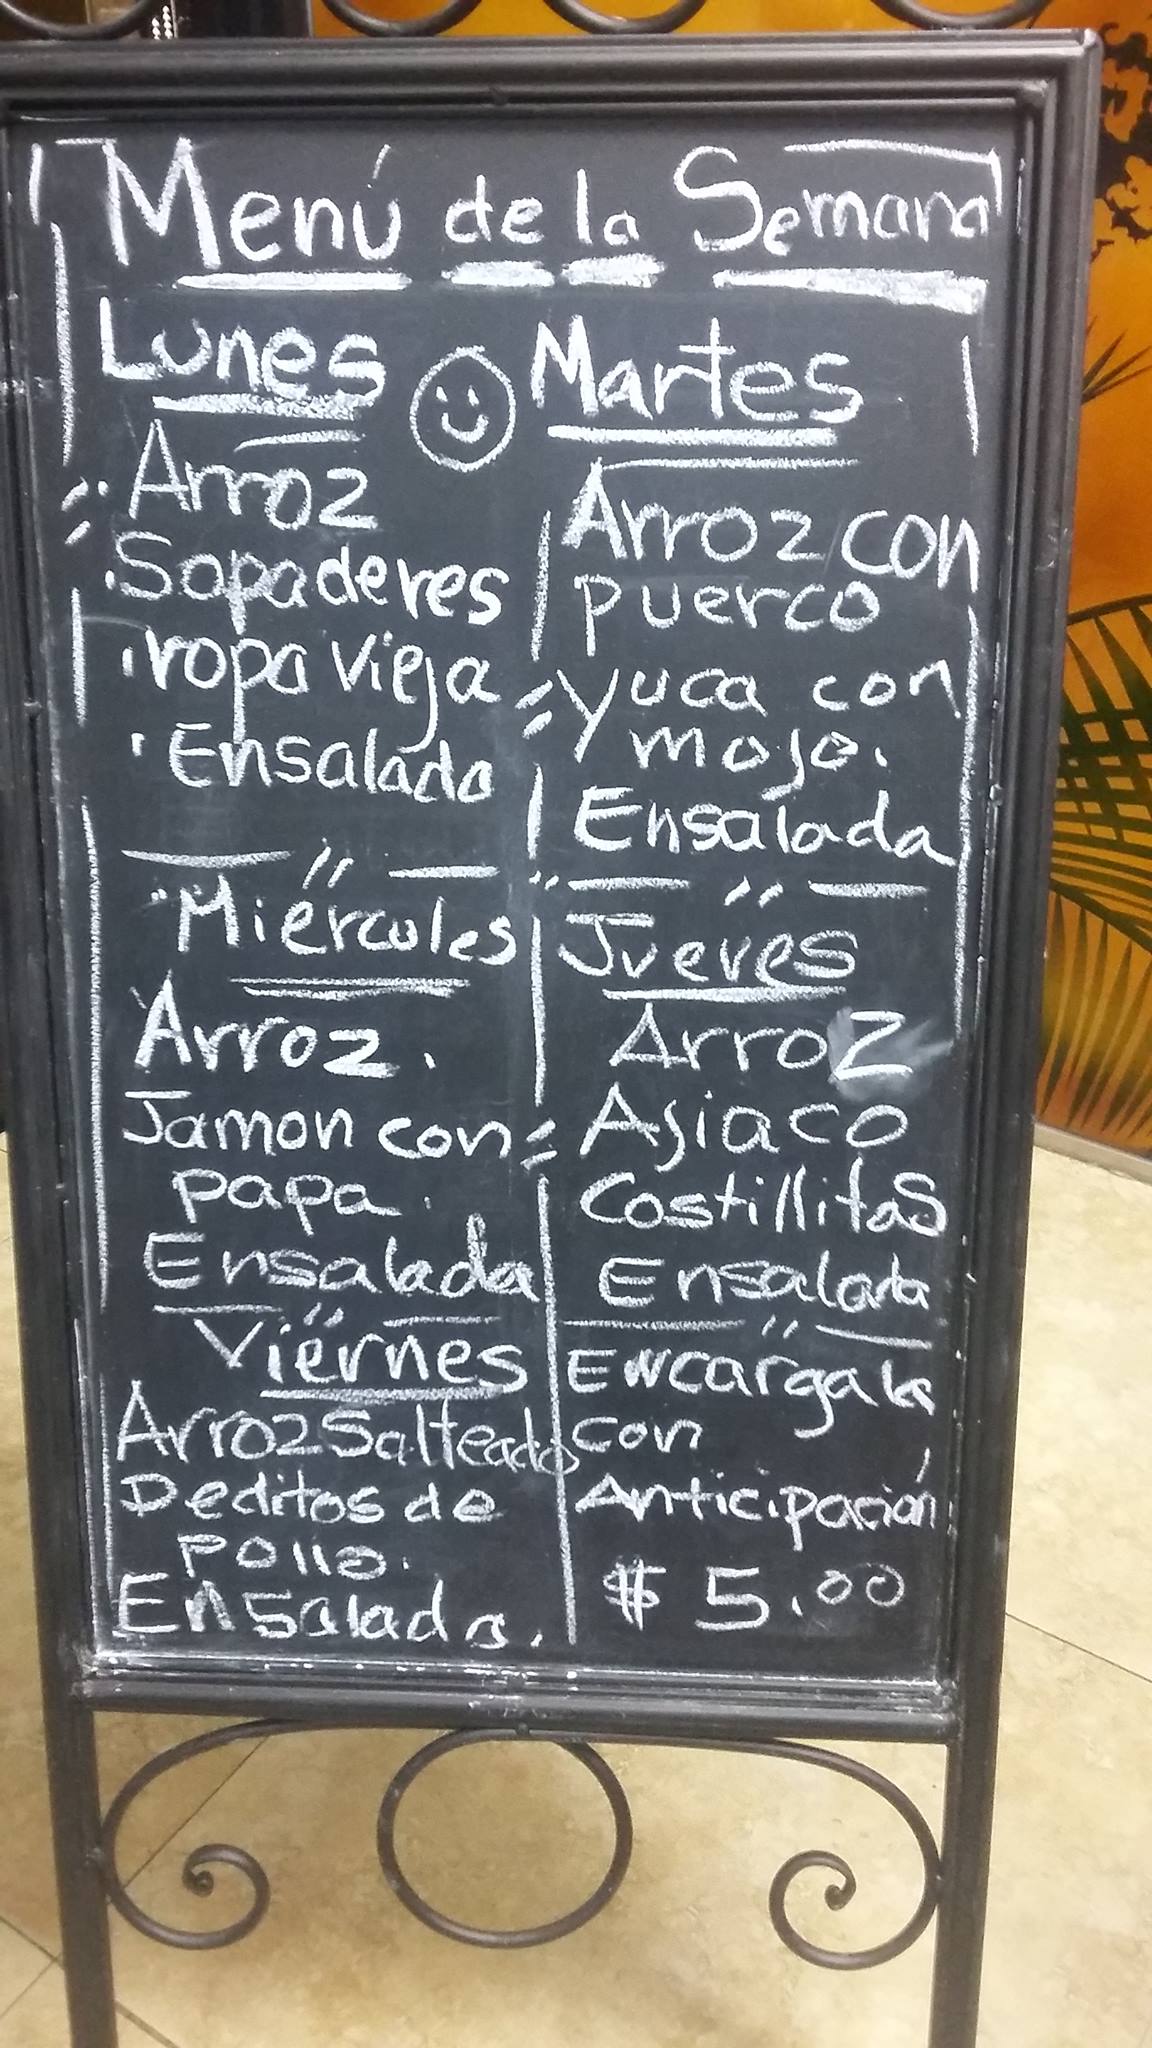 Menú de la Semana
Lunes
Arroz
Sopa de res
ropa vieja
Ensalada
Martes
Arroz con
puerco
yuca con
mojo.
Ensalada
Miércoles
Arroz.
Jamon con
papa.
Ensalada
Jueves
Arroz
Ajiaco
Costillitas
Ensalada
Viernes
Arroz Salteado
Deditos de
pollo.
Ensalada.
Encargala
con
Anticipación
$ 5.00